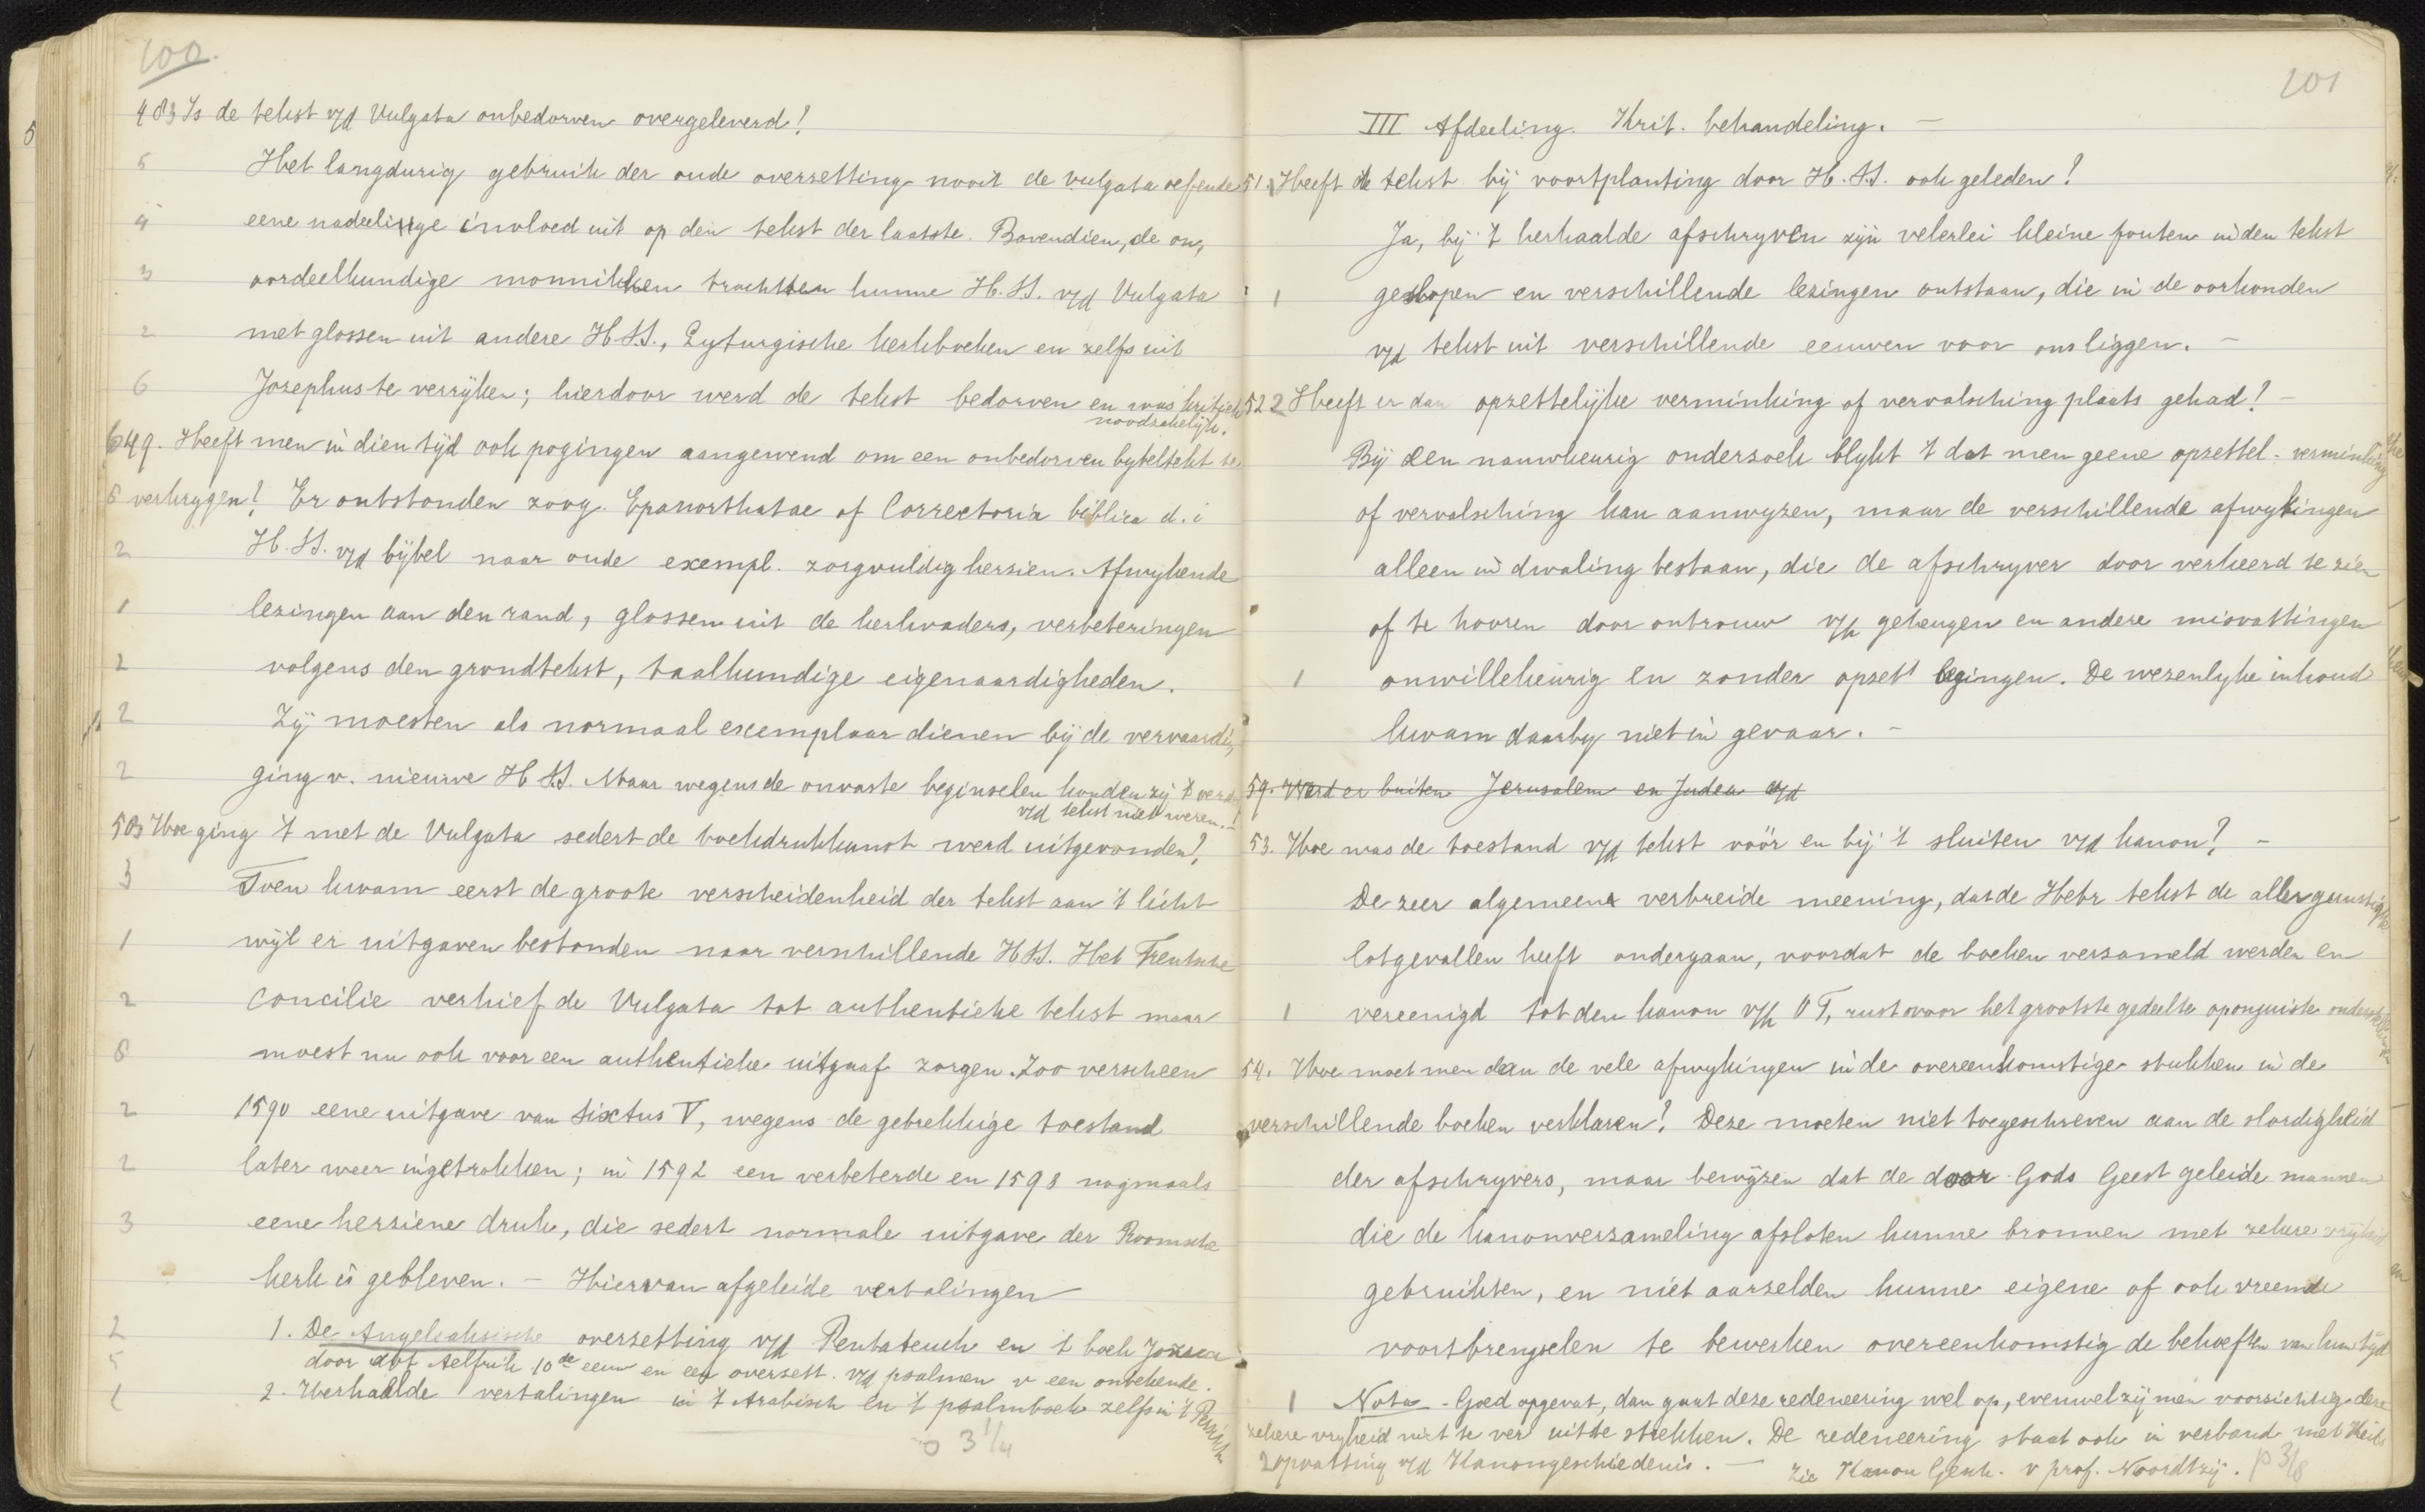 100.
48. Is de tekst v/d Vulgata onbedorven overgeleverd?
Het langdurig gebruik der oude overzetting nooit de vulgata oefende
eene nadeelige invloed uit op den tekst der laatste. Bovendien, de on,
oordeelkundige monnikken trachtten hunne H.SS. v/d Vulgata
met glossen uit andere H.SS., Lyturgische kerkboeken en zelfs uit
Josephus te verrijken; hierdoor werd de tekst bedorven en was kritiek
noodzakelijk.
49. Heeft men in dien tijd ook pogingen aangewend om een onbedorven bybeltekst te
verkrygen? Er ontstonden zoog. Epanorthatae of Correctoria biblica d.i
H.SS. v/d bijbel naar oude exempl. zorgvuldig herzien. Afwykende
lezingen aan den rand, glossen uit de kerkvaders, verbeteringen
volgens den grondtekst, taalkundige eigenaardigheden.
Zij moesten als normaal exemplaar dienen bij de vervaardi,
ging v. nieuwe H SS. Maar wegens de onvaste beginselen konden zij 't
v/d tekst niet weren.
50 Hoe ging 't met de Vulgata sedert de boekdrukkunst werd uitgevonden?
Toen kwam eerst de groote verscheidenheid der tekst aan 't licht
wijl er uitgaven bestonden naar verschillende HSS. Het Trentsche
concilie verhief de Vulgata tot authentieke tekst maar
moest nu ook voor een authentieke uitgaaf zorgen. Zoo verscheen
1590 eene uitgave van Sixtus V, wegens de gebrekkige toestand
later weer ingetrokken; in 1592 een verbeterde en 1598 nogmaals
eene herziene druk, die sedert normale uitgave der Roomsche
kerk is gebleven. — Hiervan afgeleide vertalingen
1. De Angelsaksische overzetting v/d Pentateuch en 't boek Jozua
door abt Aelfrik 10de eeuw en een overzett. v/d psalmen v een onbekende.
2. Herhaalde vertalingen in 't Arabisch en 't psalmboek zelfs in 't Perzisch
3 1/4
101
III Afdeeling. Krit. behandeling. —
51. Heeft de tekst bij voortplanting door H.SS. ook geleden?
Ja, bij 't herhaalde afschryven zijn velerlei kleine fouten in den tekst
geslopen en verschillende lezingen ontstaan, die in de oorkonden
v/d tekst uit verschillende eeuwen voor ons liggen. —
52 Heeft er dan opzettelijke verminking of vervalsching plaats gehad? —
Bij een nauwkeurig onderzoek blykt 't dat men geene opzettel. verminking
of vervalsching kan aanwyzen, maar de verschillende afwykingen
alleen in dwaling bestaan, die de afschryver door verkeerd te zien
of te hooren door ontrouw v/h geheugen en andere misvattingen
onwillekeurig en zonder opzet begingen. De wezenlyke inhoud
kwam daarby niet in gevaar. —
59. Werd er buiten Jerusalem en Judea v/d
53. Hoe was de toestand v/d tekst vóór en bij 't sluiten v/d kanon? —
De zeer algemeene verbreide meening, dat de Hebr tekst de allergunstigste
lotgevallen heeft ondergaan, voordat de boeken verzameld werden en
vereenigd tot den kanon v/h O T, rust voor het grootste gedeelte op onjuiste onderstellingen
54. Hoe moet men dan de vele afwykingen in de overeenkomstige stukken in de
verschillende boeken verklaren? Deze moeten niet toegeschreven aan de slordigheid
der afschryvers, maar bewijzen dat de door Gods Geest geleide mannen
die de kanonverzameling afsloten hunne bronnen met zekere vrijheid
gebruikten, en niet aarzelden hunne eigene of ook vreemde
voortbrengselen te bewerken overeenkomstig de behoeften van hun tijd
Nota - Goed opgevat, dan gaat deze redeneering wel op, evenwel zij men voorzichtig deze
zekere vryheid niet te ver uit te strekken. De redeneering staat ook in verband met Keils
opvatting v/d Kanongeschiedenis. — Zie Kanon Gesch. v prof. Noordtzij. p 3/8